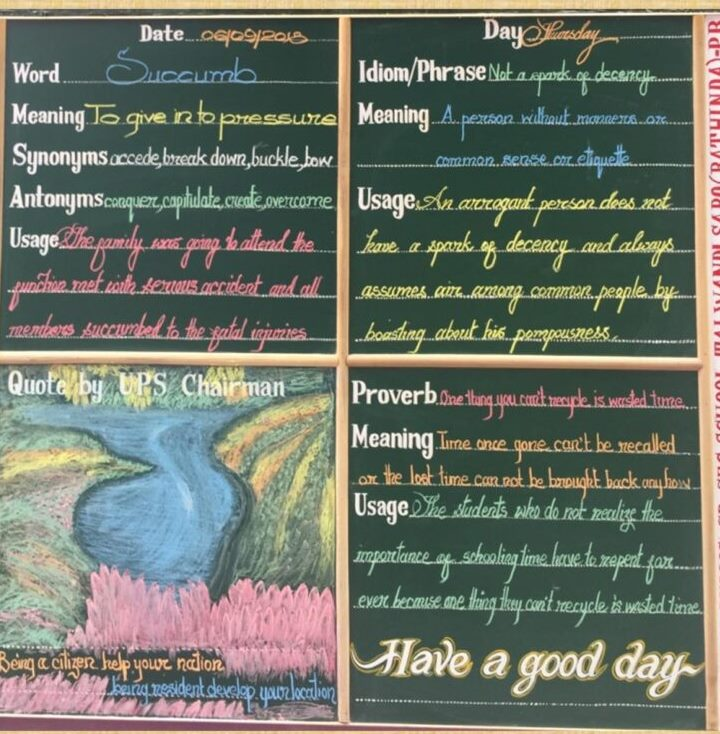 Date 06/09/2018
Word Succumb
Meaning To give in to pressure
Synonyms accede, break down, buckle, bow
Antonyms conquer, capitulate, create, overcome
Usage The family was going to attend the
function met with serious accident and all
members succumbed to the fatal injuries
Day Thursday
Idiom/Phrase Not a spark of decency
Meaning A person without manners or
common sense or etiquette
Usage An arrogant person does not
have a spark of decency and always
assumes air among common people by
boasting about his pompousness.
Quote by UPS Chairman
Being a citizen help your nation
being resident develop your location
Proverb One thing you can't recycle is wasted time
Meaning Time once gone can't be recalled
or the lost time can not be brought back anyhow
Usage The students who do not realize the
importance of schooling time have to repent for
ever because one thing they can't recycle is wasted time
Have a good day